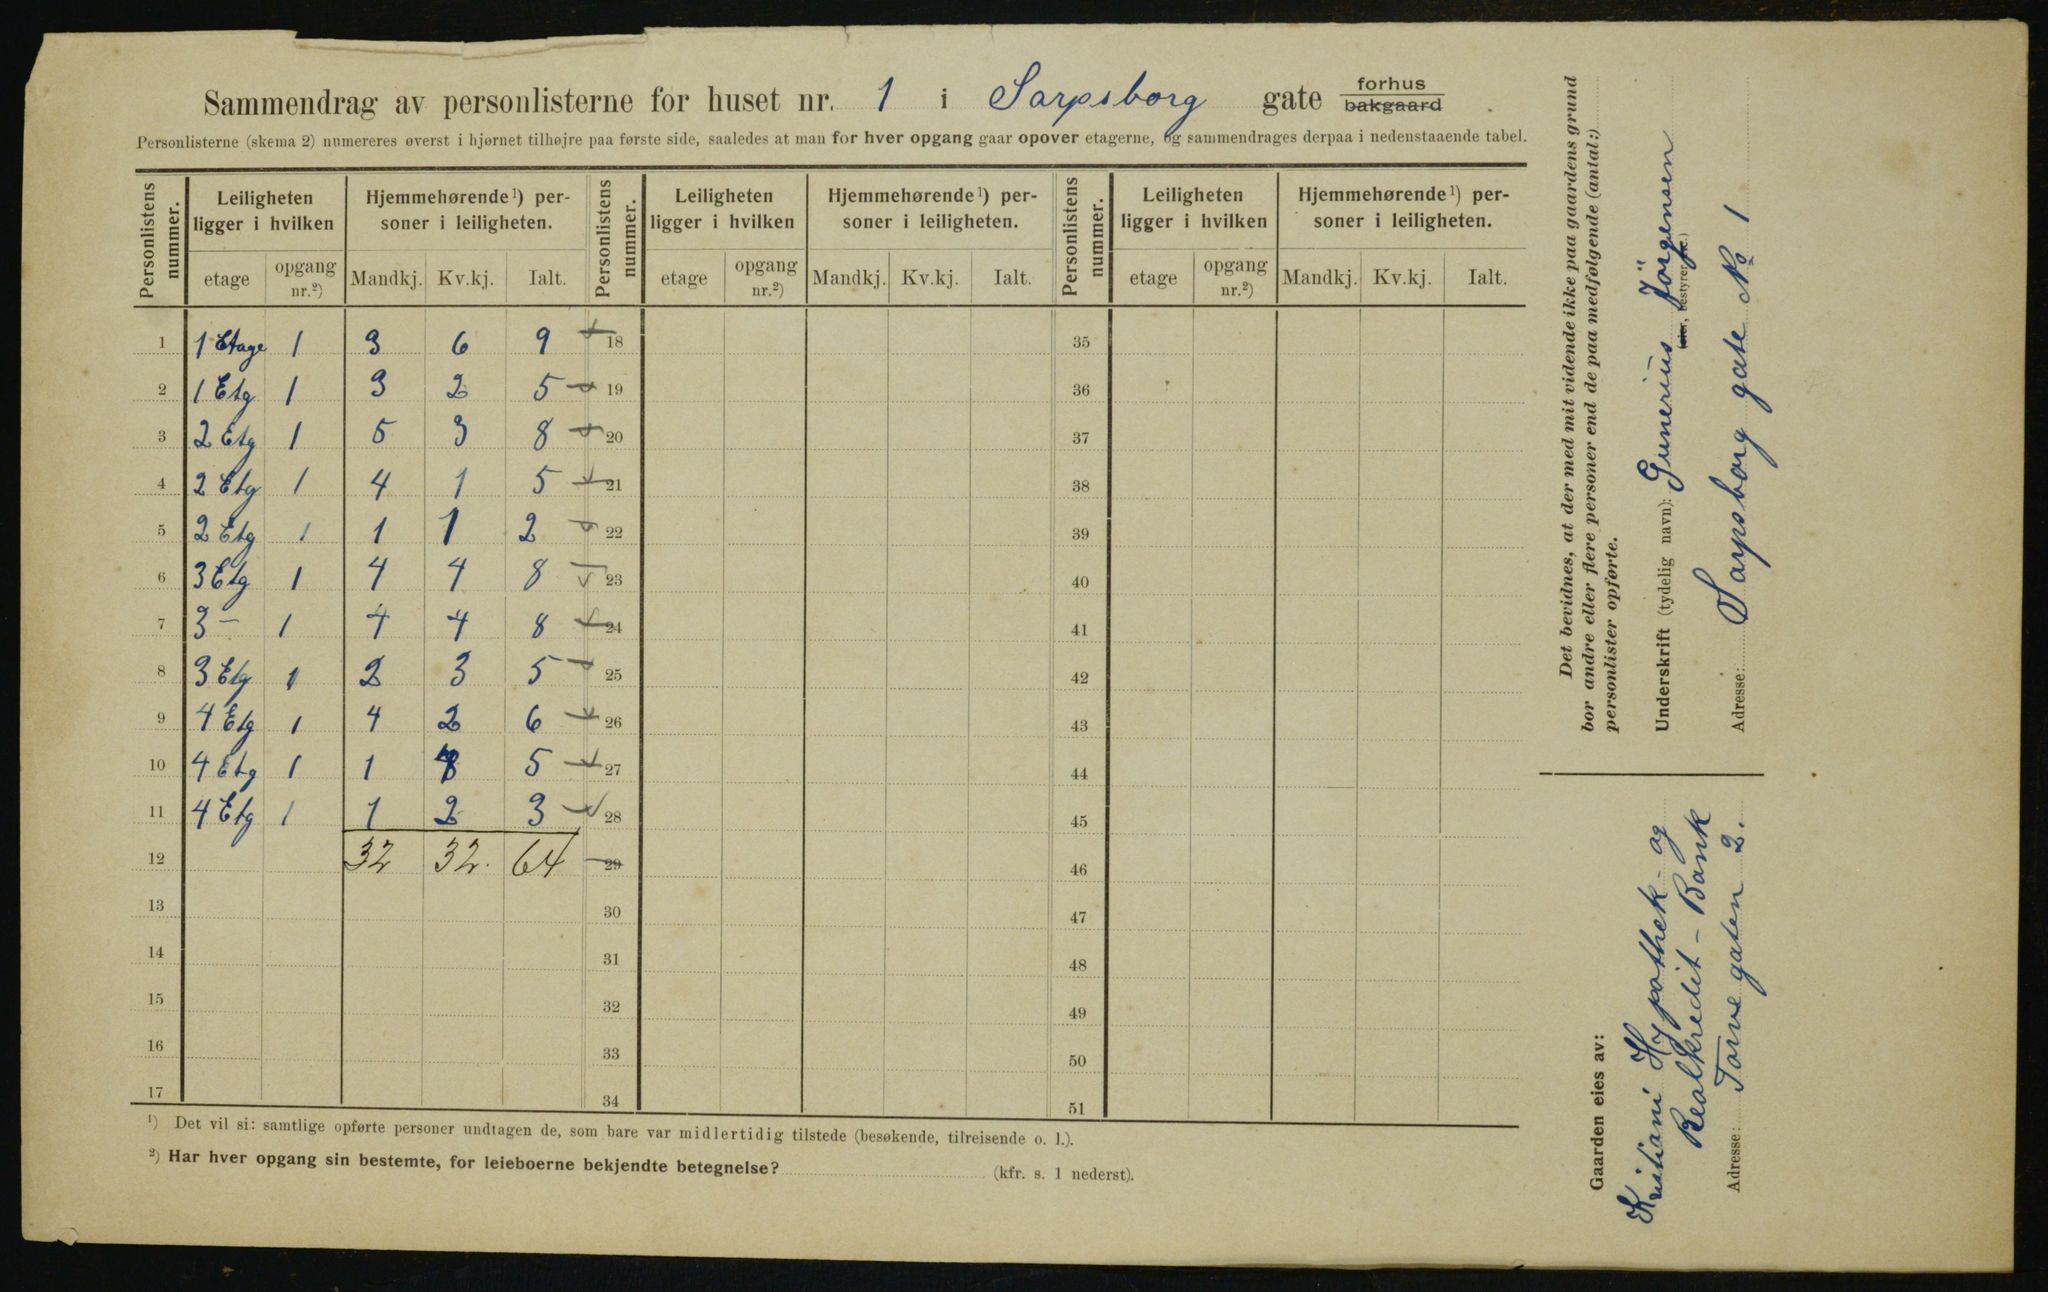 Sammendrag av personlisterne for huset nr. 1 i Sarpsborg gate forhus
bakgaard
Personlisterne (skema 2) numereres øverst i hjørnet tilhøjre paa første side, saaledes at man for hver opgang gaar opover etagerne, og sammendrages derpaa i nedenstaaende tabel.
Personlistens nummer. Leiligheten ligger i hvilken Hjemmehørende ¹) personer i leiligheten. Personlistens nummer. Leiligheten ligger i hvilken Hjemmehørende ¹) personer i leiligheten. Personlistens nummer. Leiligheten ligger i hvilken Hjemmehørende ¹) personer i leiligheten.
etage opgang nr.²) Mandkj. Kv.kj. Ialt. etage opgang nr.²) Mandkj. Kv.kj. Ialt. etage opgang nr.²) Mandkj. Kv.kj. Ialt.
1 1 Etage 1 3 6 9 18 35
2 1 Etg 1 3 2 5 19 36
3 2 Etg 1 5 3 8 20 37
4 2 Etg 1 4 1 5 21 38
5 2 Etg 1 1 1 2 22 39
6 3 Etg 1 4 4 8 23 40
7 3 — 1 4 4 8 24 41
8 3 Etg 1 2 3 5 25 42
9 4 Etg 1 4 2 6 26 43
10 4 Etg 1 1 4 5 27 44
11 4 Etg 1 1 2 3 28 45
12 32 32. 64 29 46
13 30 47
14 31 48
15 32 49
16 33 50
17 34 51
¹) Det vil si: samtlige opførte personer undtagen de, som bare var midlertidig tilstede (besøkende, tilreisende o. l.).
²) Har hver opgang sin bestemte, for leieboerne bekjendte betegnelse? (kfr. s. 1 nederst).
Det bevidnes, at der med mit vidende ikke paa gaardens grund
bor andre eller flere personer end de paa medfølgende (antal:)
personlister opførte.
Underskrift (tydelig navn): Gunerius Jörgensen
(eier, bestyrer etc.)
Adresse: Sarpsborg gate No 1
Gaarden eies av:
Kristiani Hypothek- og
Realkredit - Bank
Adresse: Torvegaten 2.